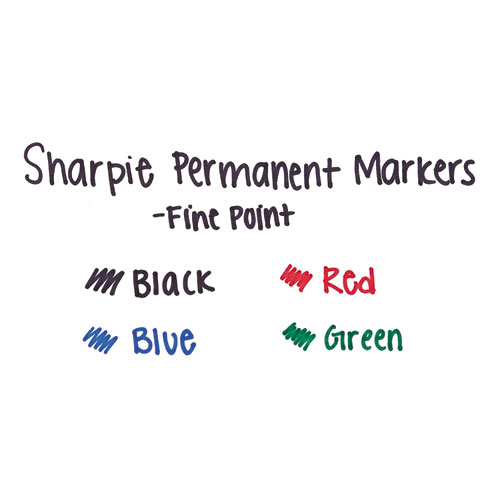 Sharpie Permanent Markers
-Fine Point
Black Red
Blue Green